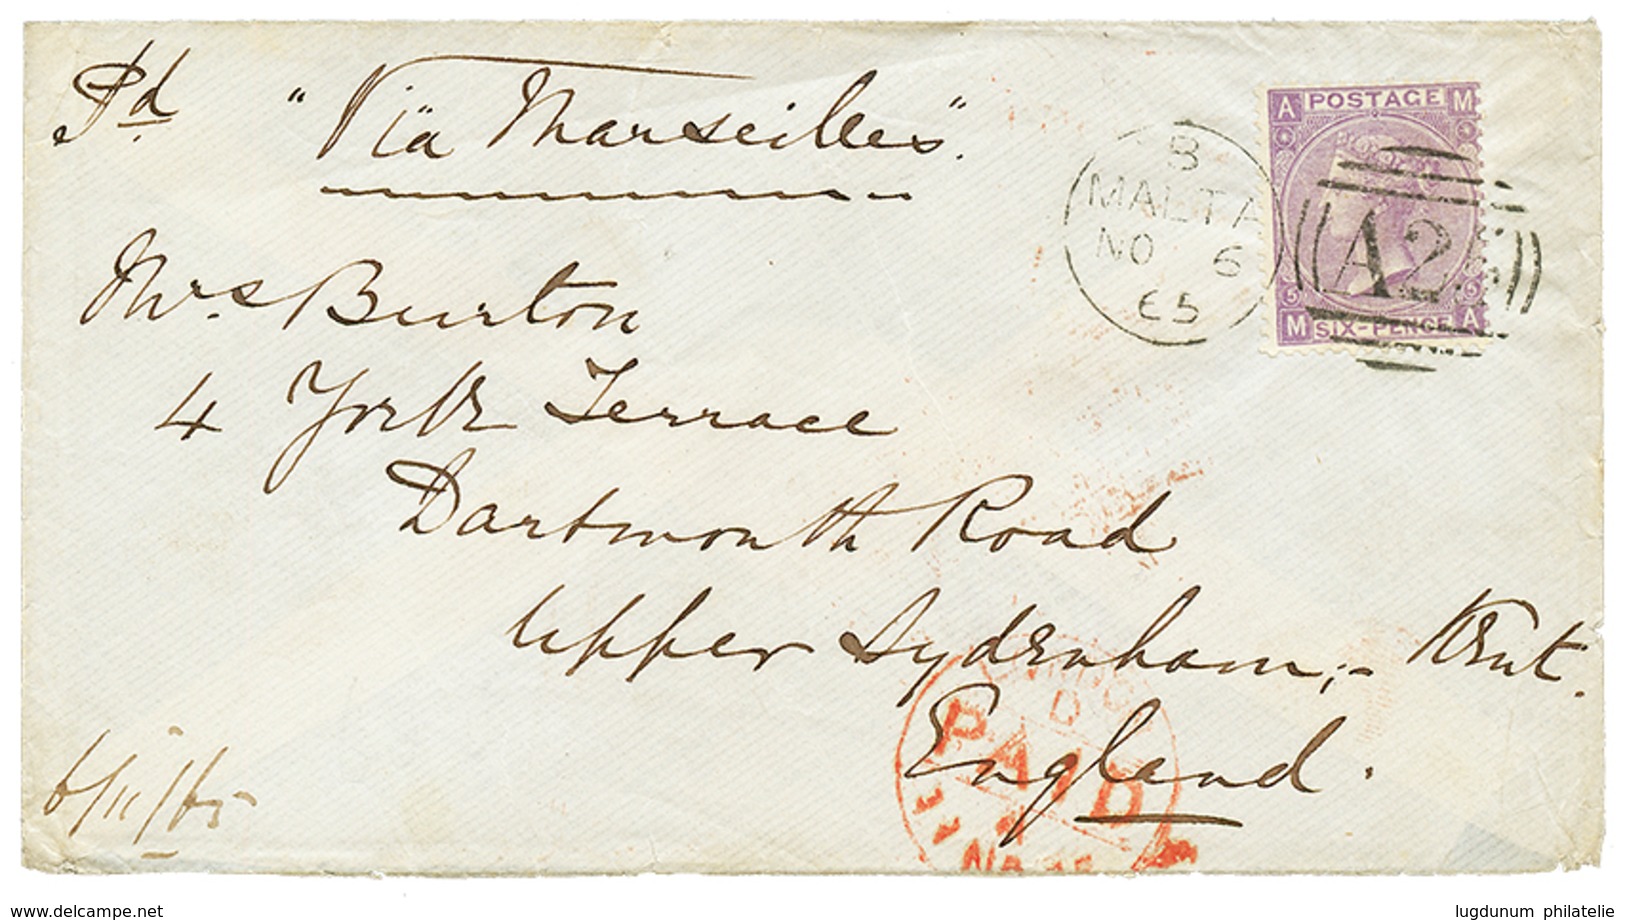 Pd "Via Marseilles".
A POSTAGE M
B
MALTA
NO 6
65
A25
5 5
M SIX-PENCE A
Mrs Burton
4 York Terrace
Dartmouth Road
Upper Sydenham;- Kent.
England.
LONDON
D
PAID
NO 65
6/11/65
delcampe.net
lugdunum philatelie